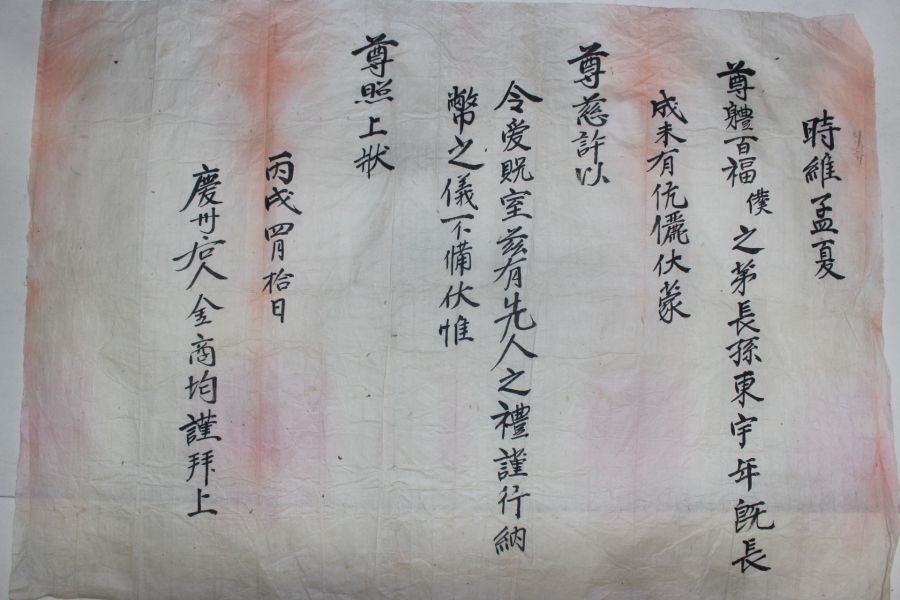 時維孟夏
尊體百福僕之第長孫東宇年旣長
成未有伉儷伏蒙
尊慈許以
令爱貺室玆有先人之禮謹行納
幣之儀不備伏惟
尊照上狀
丙戌四月拾日
慶州后人金商均謹拜上